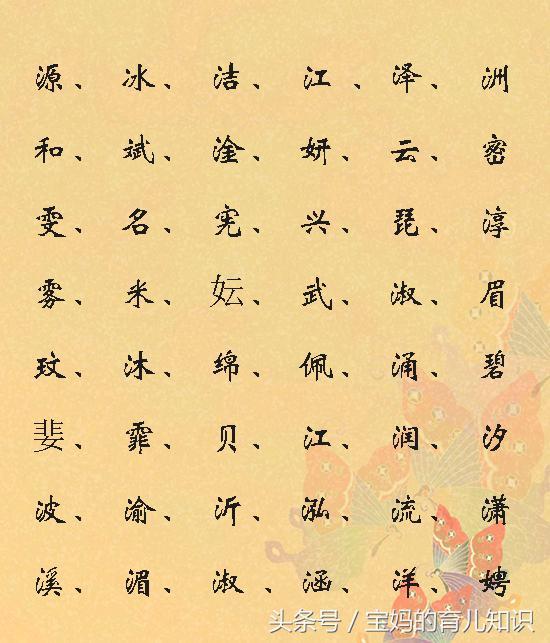 源、冰、洁、江、泽、洲
和、斌、淦、妍、云、密
雯、名、宪、兴、琵、淳
雾、米、妘、武、淑、眉
玟、沐、绵、佩、涌、碧
婓、霏、贝、江、润、汐
波、渝、沂、泓、流、潇
溪、湄、淑、涵、洋、娉
头条号／宝妈的育儿知识